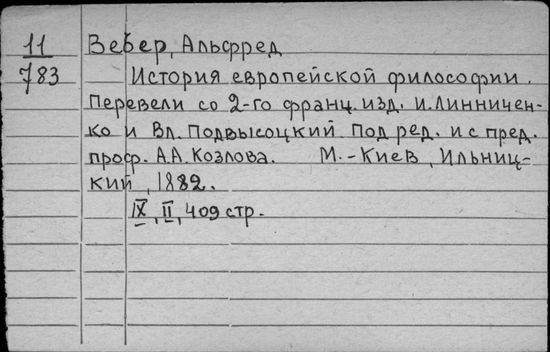 11 Вебер, Альфред
783 История европейской философии.
Перевели со 2-го франц. изд. И. Линничен-
ко и Вл. Подвысоцкий. Под ред. и с пред.
проф. А.А. Козлова. М.-Киев, Ильниц-
кий, 1882.
IX, II, 409 стр.